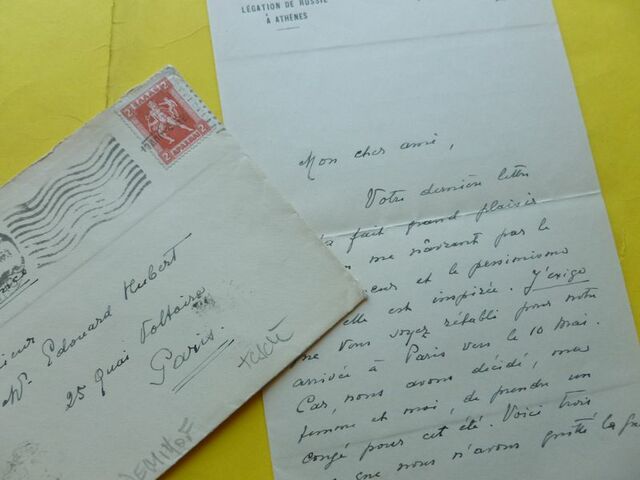 LÉGATION DE RUSSIE
À ATHÈNES
Mon cher ami,
Votre dernière lettre
a fait grand plaisir
me navrant par le
et le pessimisme
elle est inspirée. J'exige
Vous soyez rétabli pour notre
arrivée à Paris vers le 10 Mai.
Car, nous avons décidé, ma
femme et moi, de prendre un
congé pour cet été. Voici trois
que nous n'avons goûté la
2 ΕΛΛΑΣ 2
2 ΛΕΠΤΑ 2
Edouard Hubert
25 Quai Voltaire
Paris.
DEMIDOF